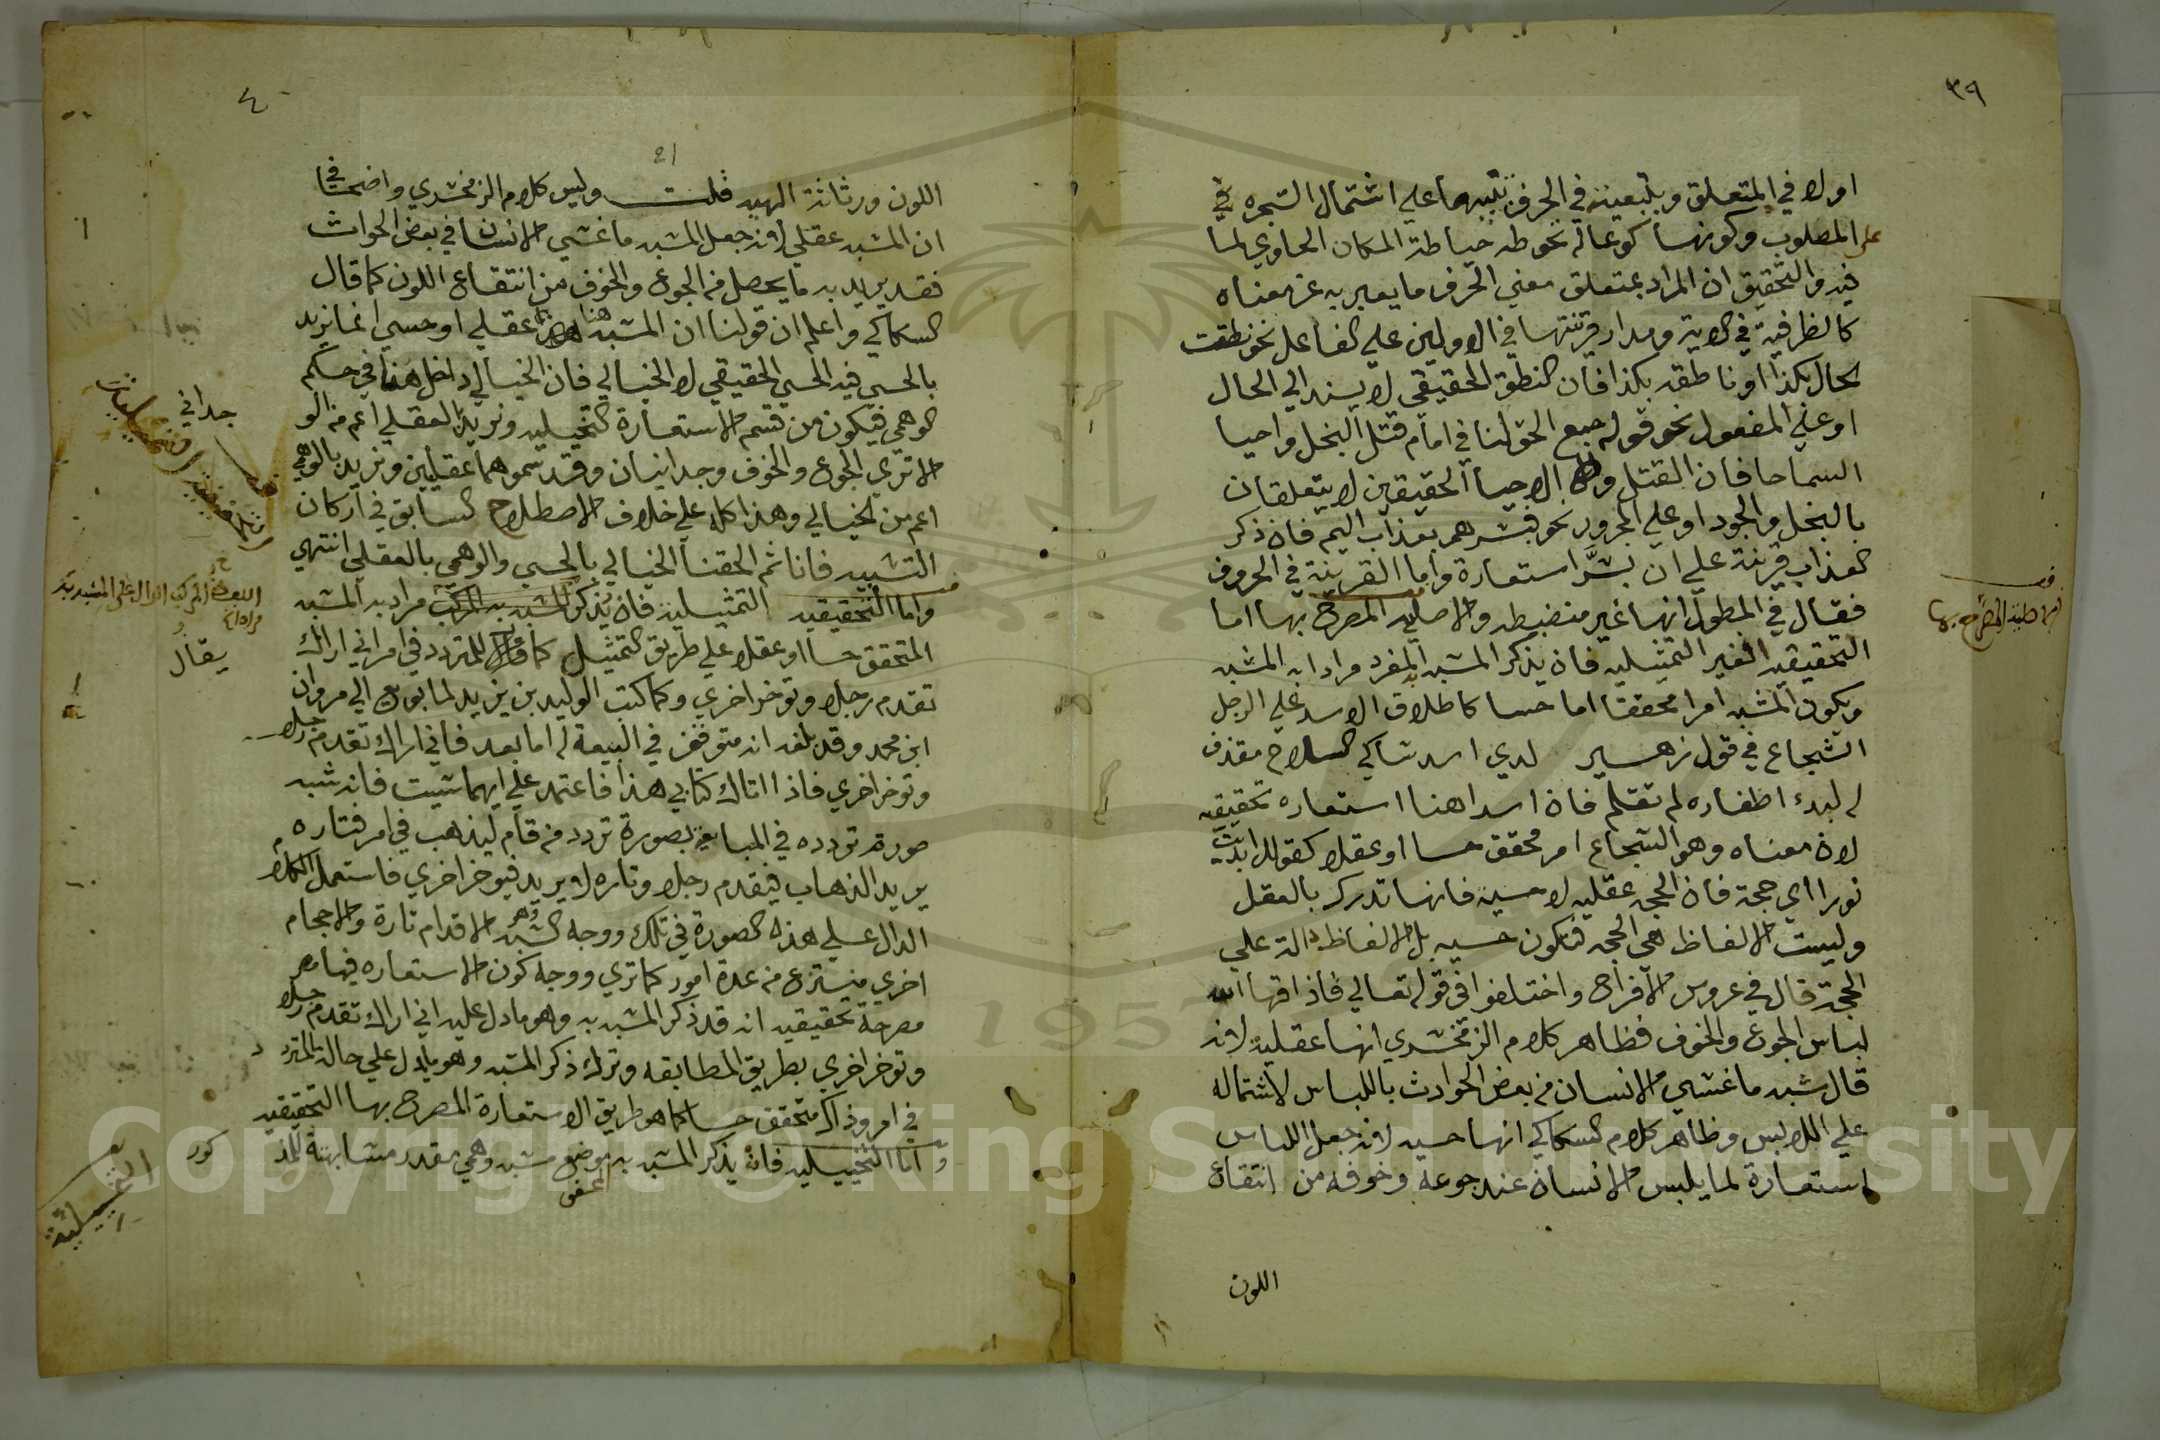 ٣٩
اولا في المتعلق وبتبعيته في الحرف تشبيها علي اشتمال الشجرة في
على المصلوب وكونها كوعاله نحوطه حياطة المكان الحاوي لما
فيه والتحقيق ان المراد بمتعلق معني الحرف ما يعبر به عن معناه
كالظرفية في الاية ومدار قرينتها في الاولين علي الفاعل نحو نطقت
الحال بكذا او ناطقه بكذا فان النطق الحقيقي لا يسند الي الحال
او علي المفعول نحو قوله جمع الحق لنا في امام قتل البخل واحيا
السماحا فان القتل والاحيا الحقيقين لا يتعلقان
بالبخل والجود او علي المجرور نحو فبشرهم بعذاب اليم فان ذكر
العذاب قرينة علي ان بشَّر استعارة واما القرينة في الحروف
فقال في المطول انها غير منضبطه والاصليه المصرح بها اما
التحقيقيه الغير التمثيليه فان يذكر المشبه به المفرد مرادا به المشبه
ويكون المشبه امرا محققا اما حسا كاطلاق الاسد علي الرجل
الشجاع في قول زهير لدي اسد شاكي السلاح مقذف
له لبد اظفاره لم تقلم فان اسدا هنا استعاره تحقيقيه
لان معناه وهو الشجاع امر محقق حسا او عقلا كقولك ابديت
نورا اي حجة فان الحجه عقليه لا حسيه فانها تدرك بالعقل
وليست الالفاظ هي الحجه فتكون حسيه بل الالفاظ دالة علي
الحجة قال في عروس الافراح واختلفوا في قوله تعالي فاذاقها الله
لباس الجوع والخوف فظاهر كلام الزمخشري انها عقليه لانه
قال شبه ما غشي الانسان من بعض الحوادث باللباس لاشتماله
علي اللابس وظاهر كلام السكاكي انها حسيه لانه جعل اللباس
استعارة لما يلبس الانسان عند جوعه وخوفه من انتقاع
اللون
الاصلية المصرح بها
٤٠
21
اللون ورثاثة الهيه قلت وليس كلام الزمخشري واضحا في
ان المشبه عقلي لانه جعل المشبه ما غشي الانسان في بعض الحوادث
فقد يريد به ما يحصل من الجوع والخوف من انتقاع اللون كما قال
السكاكي واعلم ان قولنا ان المشبه هنا عقلي او حسي انما نريد
بالحسي فيه الحسي الحقيقي لا الخيالي فان الخيالي داخل هنا في حكم
الوهمي فيكون من قسم الاستعارة التخييليه ونريد بالعقلي اعم من الو
جداني
الا تري الجوع والخوف وجدانيان وقد سموهما عقليين ونريد بالوهمي
اعم من الخيالي وهذا كله علي خلاف الاصطلاح السابق في اركان
التشبيه فانا ثم الحقنا الخيالي بالحسي والوهمي بالعقلي انتهي
واما التحقيقيه التمثيليه فان يذكر المشبه به المركب مراد به المشبه
المتحقق حسا او عقلا علي طريق التمثيل كما يقال للمتردد في امر اني اراك
يقال
تقدم رجلا وتوخر اخري وكما كتب الوليد بن يزيد لما بويع الي مروان
ابن محمد وقد بلغه انه متوقف في البيعة له اما بعد فاني اراك تقدم رجلا
وتوخر اخري فاذا اتاك كتابي هذا فاعتمد علي ايهما شيت فانه شبه
صورة تردده في المبايعه بصورة تردد من قام ليذهب في امر فتاره
يريد الذهاب فيقدم رجلا وتاره لا يريد فيوخر اخري فاستعمل الكلام
الدال علي هذه الصورة في تلك ووجه الشبه وهو الاقدام تارة والاحجام
اخري منتزع من عدة امور كما تري ووجه كون الاستعاره فيها
مصرحة تحقيقيه انه قد ذكر المشبه به وهو ما دل عليه اني اراك تقدم رجلا
وتوخر اخري بطريق المطابقه وترك ذكر المشبه وهو ما يدل علي حالة المتردد
في امر وذاك متحقق حسا كما هو طريق الاستعارة المصرح بها التحقيقيه
واما التخييليه فان يذكر المشبه به موضع مشبه وهمي مقدر مشابهته للمذ
كور
المحقق
Copyright © King Saud University
1957